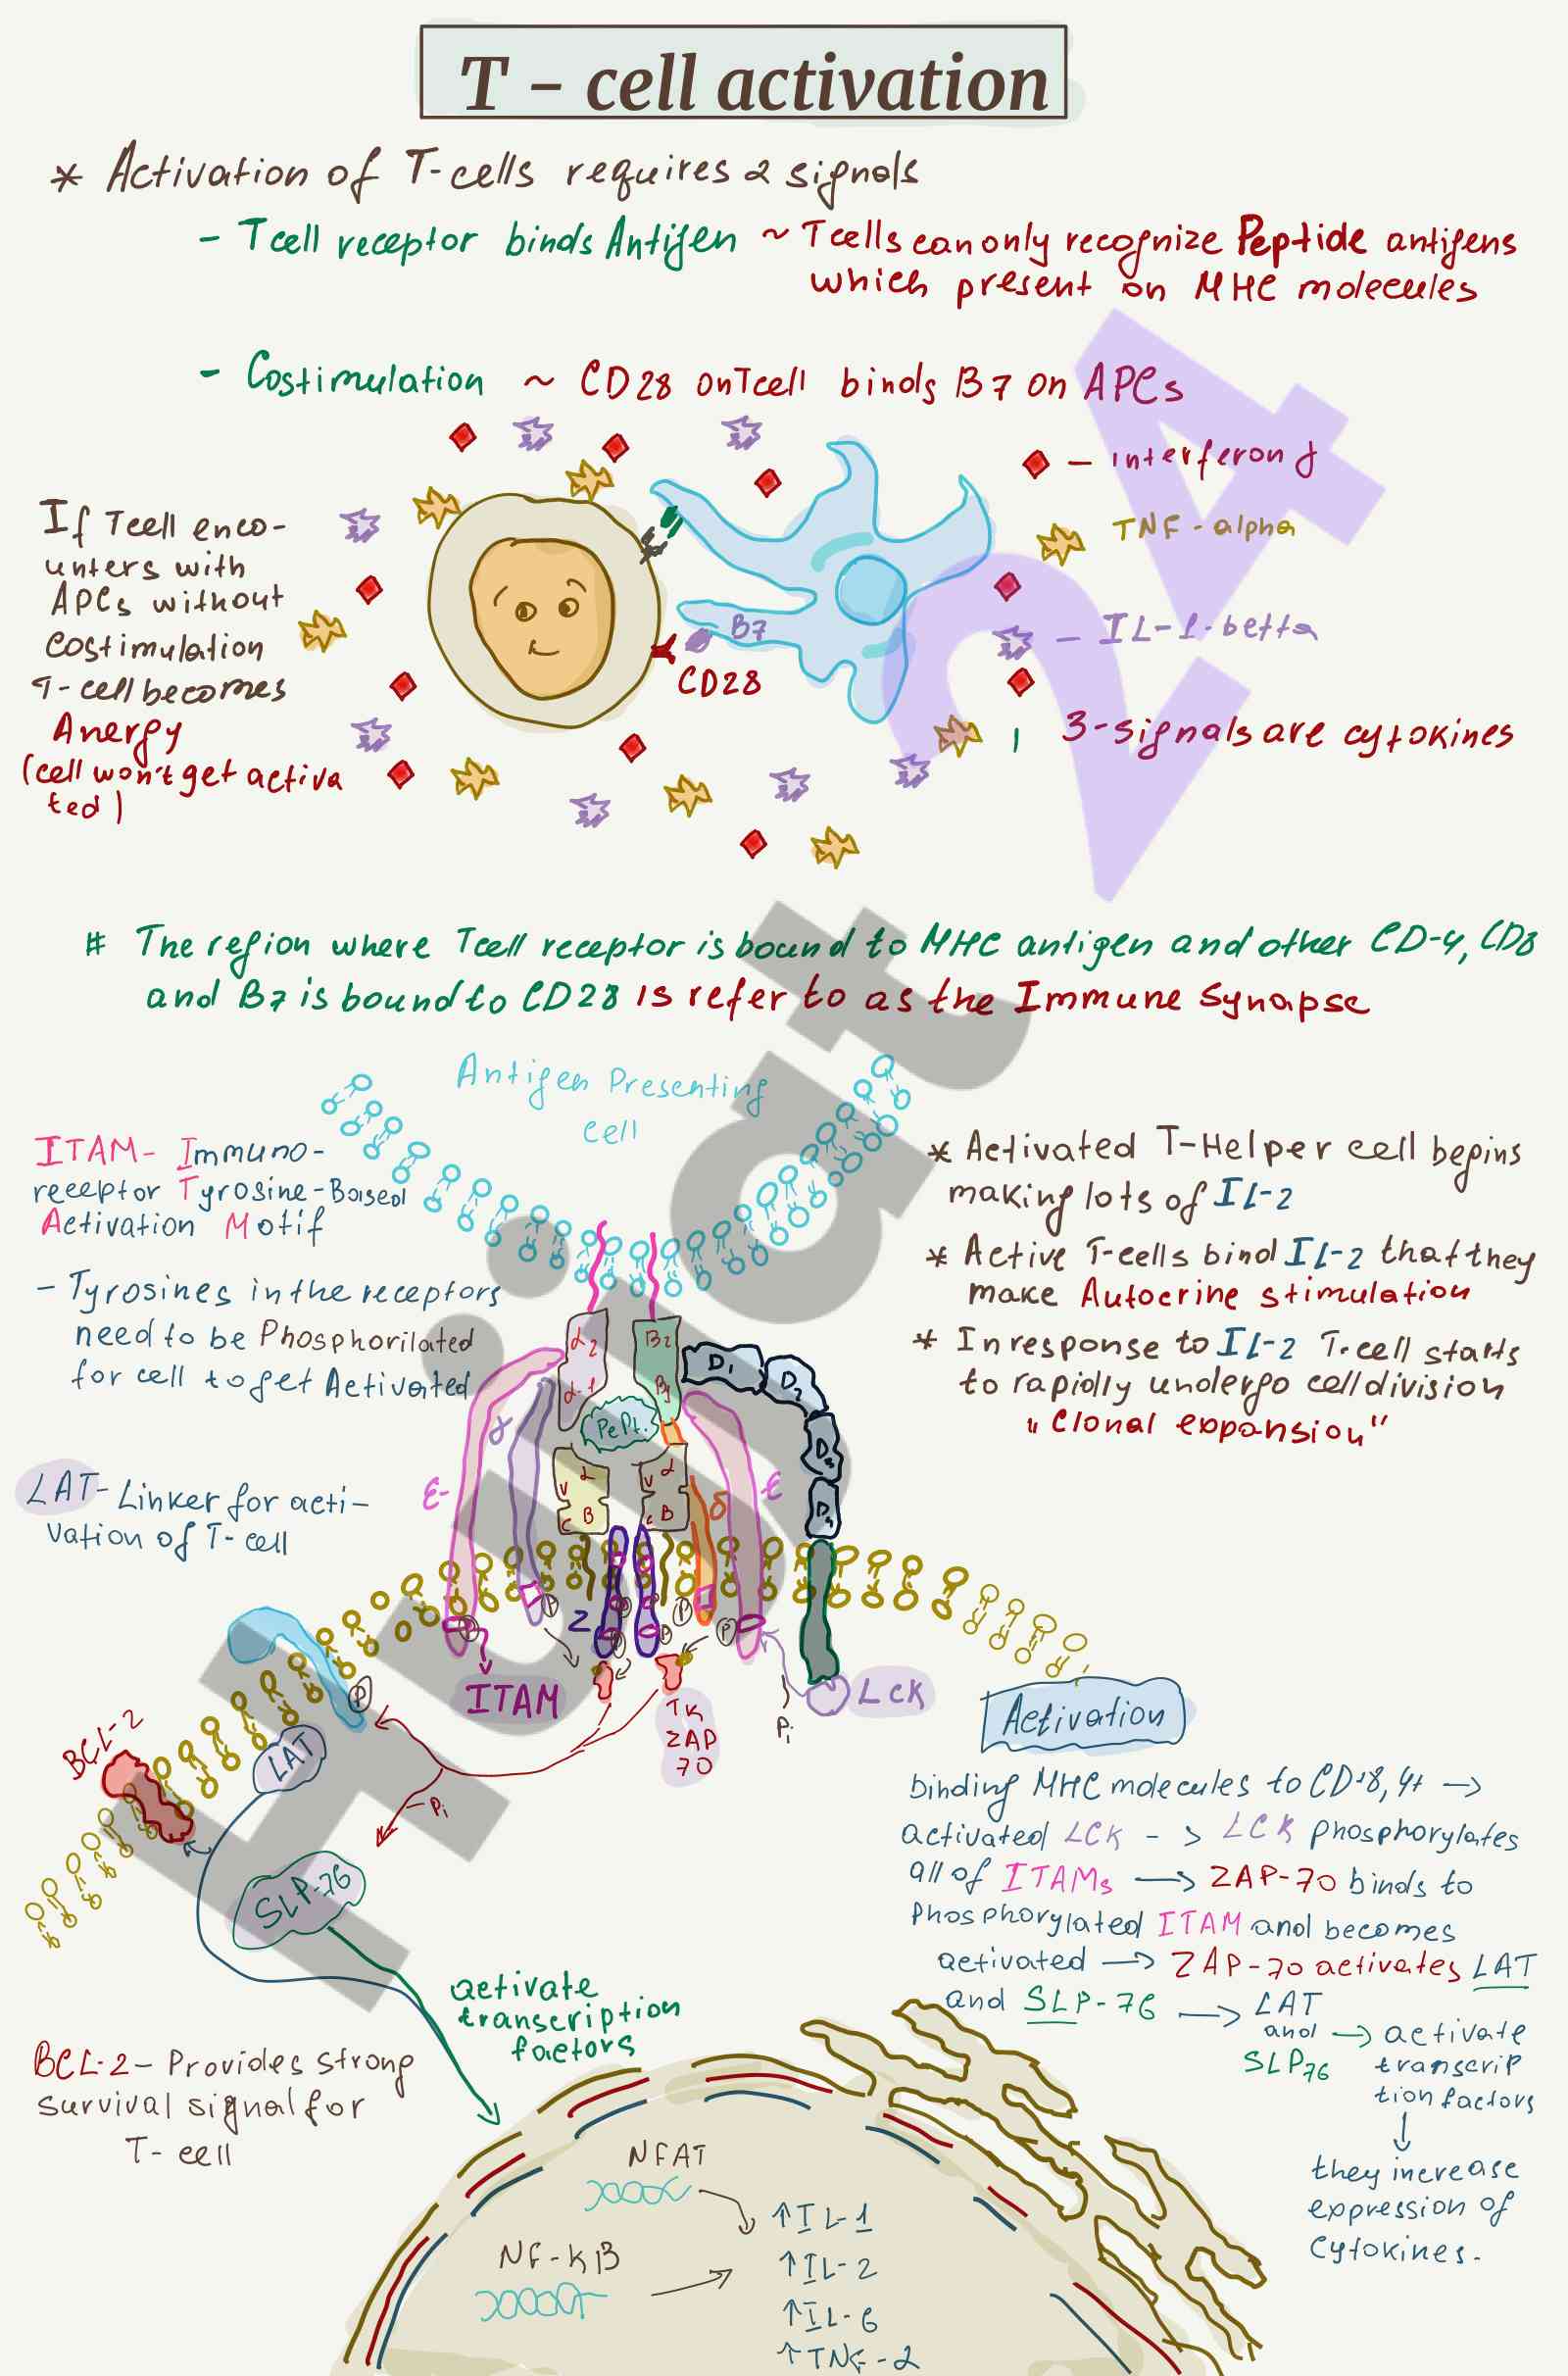 T - cell activation
* Activation of T-cells requires 2 signals
- Tcell receptor binds Antigen ~ Tcells can only recognize Peptide antigens
which present on MHC molecules
- Costimulation ~ CD28 on Tcell binds B7 on APCs
- interferon γ
TNF - alpha
- IL-1-betta
3-signals are cytokines
B7
CD28
If Tcell enco-
unters with
APCs without
costimulation
T-cell becomes
Anergy
(cell won't get activa
ted)
# The region where Tcell receptor is bound to MHC antigen and other CD-4, CD8
and B7 is bound to CD28 is refer to as the Immune Synapse
Antigen Presenting
cell
ITAM- Immuno-
receptor Tyrosine-Based
Activation Motif
- Tyrosines in the receptors
need to be Phosphorilated
for cell to get Activated
LAT- Linker for acti-
vation of T-cell
* Activated T-Helper cell begins
making lots of IL-2
* Active T-cells bind IL-2 that they
make Autocrine stimulation
* In response to IL-2 T-cell starts
to rapidly undergo cell division
"Clonal expansion"
α2
α-1
B2
B1
PePt.
D1
D2
D3
D4
ε-
γ
V α
C B
V α
C B
δ
ε
Z
P
P
P
P
P
P
P
P
ITAM
TK
ZAP
70
Pi
LCK
BCL-2
LAT
-Pi
SLP-76
activate
transcription
factors
BCL-2 - Provides strong
survival signal for
T- cell
Activation
binding MHC molecules to CD+8, 4+ →
activated LCK - > LCK phosphorylates
all of ITAMs → ZAP-70 binds to
Phosphorylated ITAM and becomes
activated → ZAP-70 activates LAT
and SLP-76 → LAT
and → activate
SLP76 transcrip
tion factors
↓
they increase
expression of
cytokines.
NFAT
NF-KB
↑IL-1
↑IL-2
↑IL-6
↑TNF-2
Hujat 24